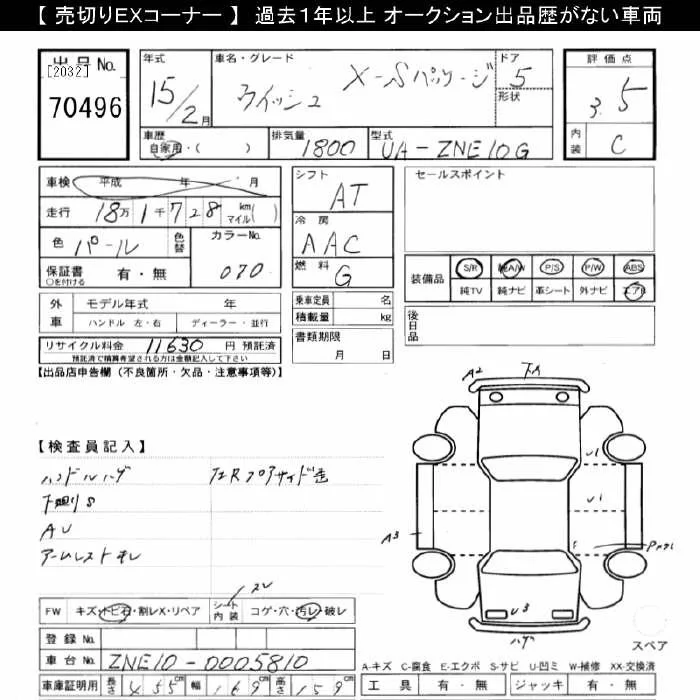 【 売切りEXコーナー 】 過去1年以上 オークション出品歴がない車両
出品No.
[2032]
70496
年式
15/2月
車名・グレード
ウイッシュ X-Sパッケージ
ドア
5
形状
評価点
3.5
内装
C
車歴
自家用・( )
排気量
1800
型式
UA-ZNE10G
車検 平成 年 月
走行 18万1千728 km マイル( )
色 パール 色替
カラーNo.
070
保証書 有・無
○を付ける
外車 モデル年式 年
ハンドル 左・右 ディーラー・並行
リサイクル料金 11630 円 預託済
預託済で積算希望される方は金額記入して下さい
シフト
AT
冷房
AAC
燃料
G
乗車定員 名
積載量 kg
書類期限
月 日
セールスポイント
装備品 S/R 純A/W P/S P/W ABS
純TV 純ナビ 革シート 外ナビ エアB
後日品
【出品店申告欄 (不良箇所・欠品・注意事項等)】
【検査員記入】
ハンドルハゲ
下廻りS
AU
アームレストキレ
A2
U1
U1
A3
U3
ハゲ
FW キズ・トビ石・割レX・リペア シート内装 コゲ・穴・汚レ・破レ
スレ
登録No.
車台No. ZNE10-0005810
車庫証明用 長さ 455 幅 169 高さ 159
スペア
A-キズ C-腐食 E-エクボ S-サビ U-凹ミ W-補修 XX-交換済
工具 有・無 ジャッキ 有・無